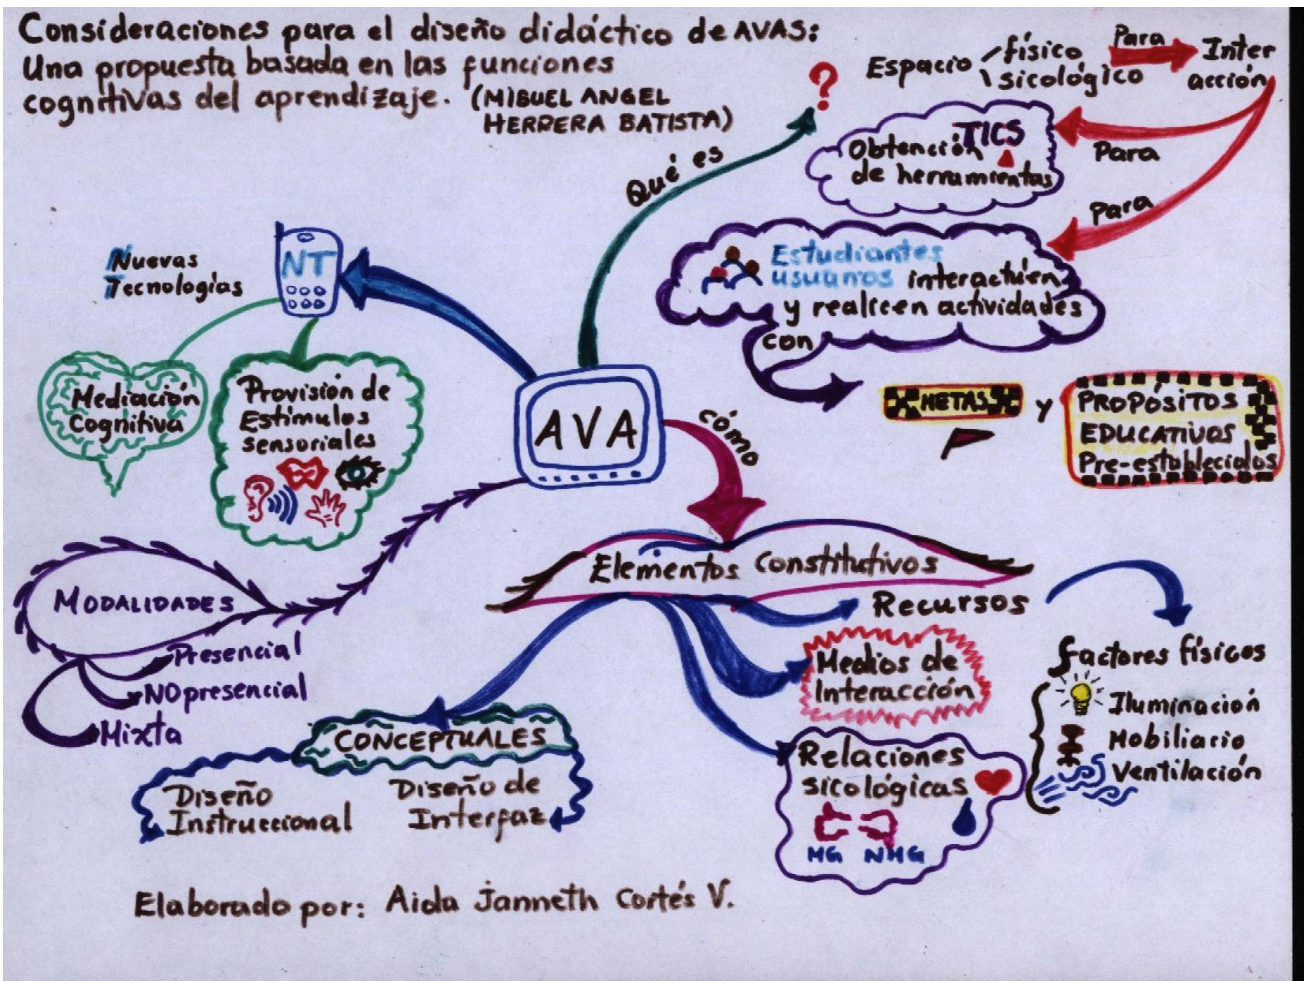 Consideraciones para el diseño didáctico de AVAS:
Una propuesta basada en las funciones
cognitivas del aprendizaje. (MIGUEL ANGEL
HERRERA BATISTA)
Qué es
?
Espacio físico
sicológico
Para
Inter
acción
Para
TICS
Obtención
de herramientas
Para
Estudiantes
usuarios interactúen
y realicen actividades
con
METAS
y
PROPÓSITOS
EDUCATIVOS
Pre-establecidos
Nuevas
Tecnologías
NT
Mediación
Cognitiva
Provisión de
Estímulos
sensoriales
AVA
cómo
Elementos Constitutivos
MODALIDADES
Presencial
NO presencial
Mixta
Recursos
Medios de
Interacción
Relaciones
sicológicas
MG NMG
factores físicos
Iluminación
Mobiliario
Ventilación
CONCEPTUALES
Diseño
Instruccional
Diseño de
Interfaz
Elaborado por: Aida Janneth Cortés V.